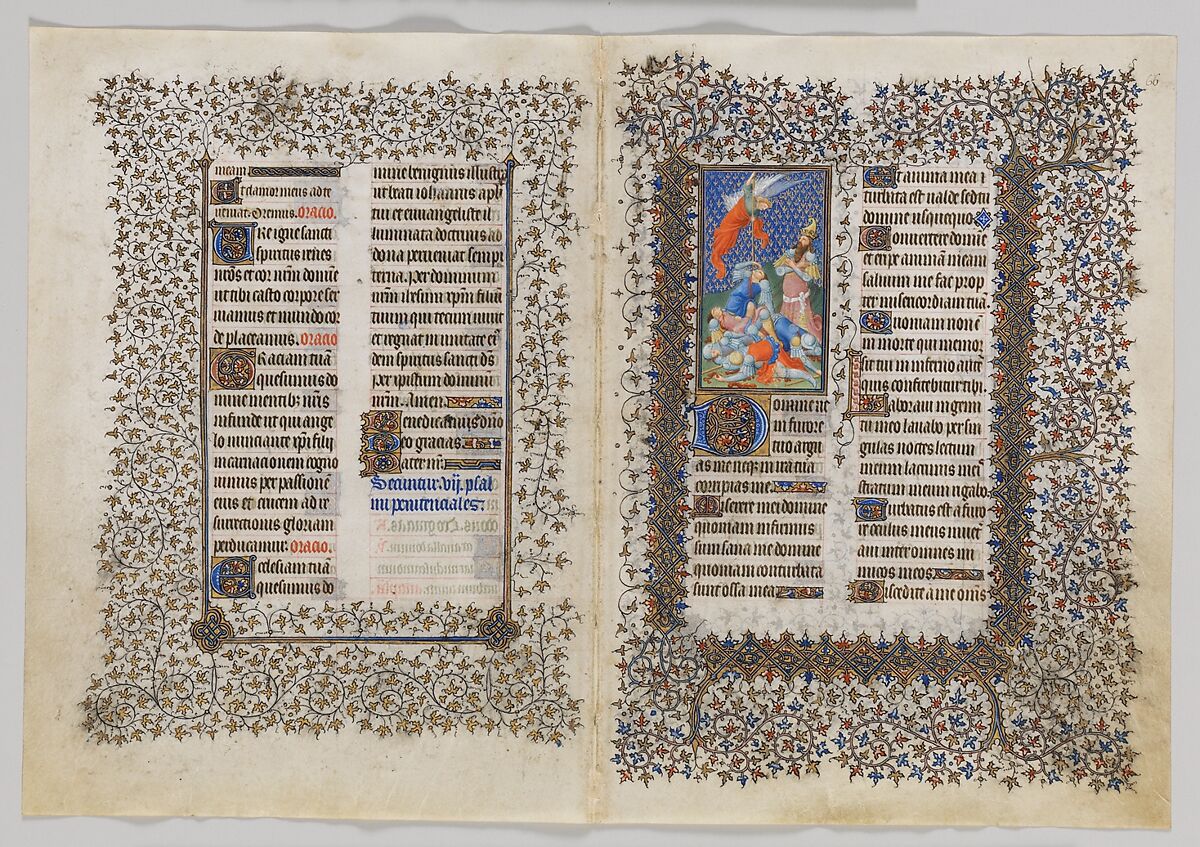 meam
Et clamor meus ad te
veniat. Oremus. Oracio.
Ure igne sancti
spiritus renes
n̄ros et cor n̄rm domine
ut tibi casto corpore ser
viamus et mundo cor
de placeamus. Oracio
Graciam tuā
quesumus do
mine mentib; n̄ris
infunde ut qui ange
lo nunciante xp̄i filij
incarnacionem cogno
vimus per passionē
eius et crucem ad re
surrectionis gloriam
perducamur. Oracio.
Ecclesiam tuā
quesumus do
mine benignus illustra
ut beati iohannis apos
tui et euuangeliste il
luminata doctrinis ad
dona perveniat sempi
terna. per dominum
n̄rm ihesum xp̄m filiū
tuum qui tecum vivit
et regnat in unitate ei
dem spiritus sancti d̄s
per ipsum dominū
n̄rm. Amen.
Benedicamus dn̄o
Deo gracias
Pater n̄r.
Secuntur .vij. psal
mi penitenciales.
66
Domine ne
in furore
tuo argu
as me neq; in ira tua
corripias me.
Miserere mei domine
quoniam infirmus
sum sana me domine
quoniam conturbata
sunt ossa mea
Et anima mea t
turbata est valde sed tu
domine usquequo
Convertere domine
et eripe animam meam
salvum me fac prop
ter misericordiam tuā.
Quoniam non ē
in morte qui memor
sit tui in inferno autē
quis confitebitur tibi.
Laboravi in gemi
tu meo lavabo per sin
gulas noctes lectum
meum lacrimis meis
stratum meum rigabo.
Turbatus est a furo
re oculus meus inve
avi inter omnes ini
micos meos
Discedite a me om̄s